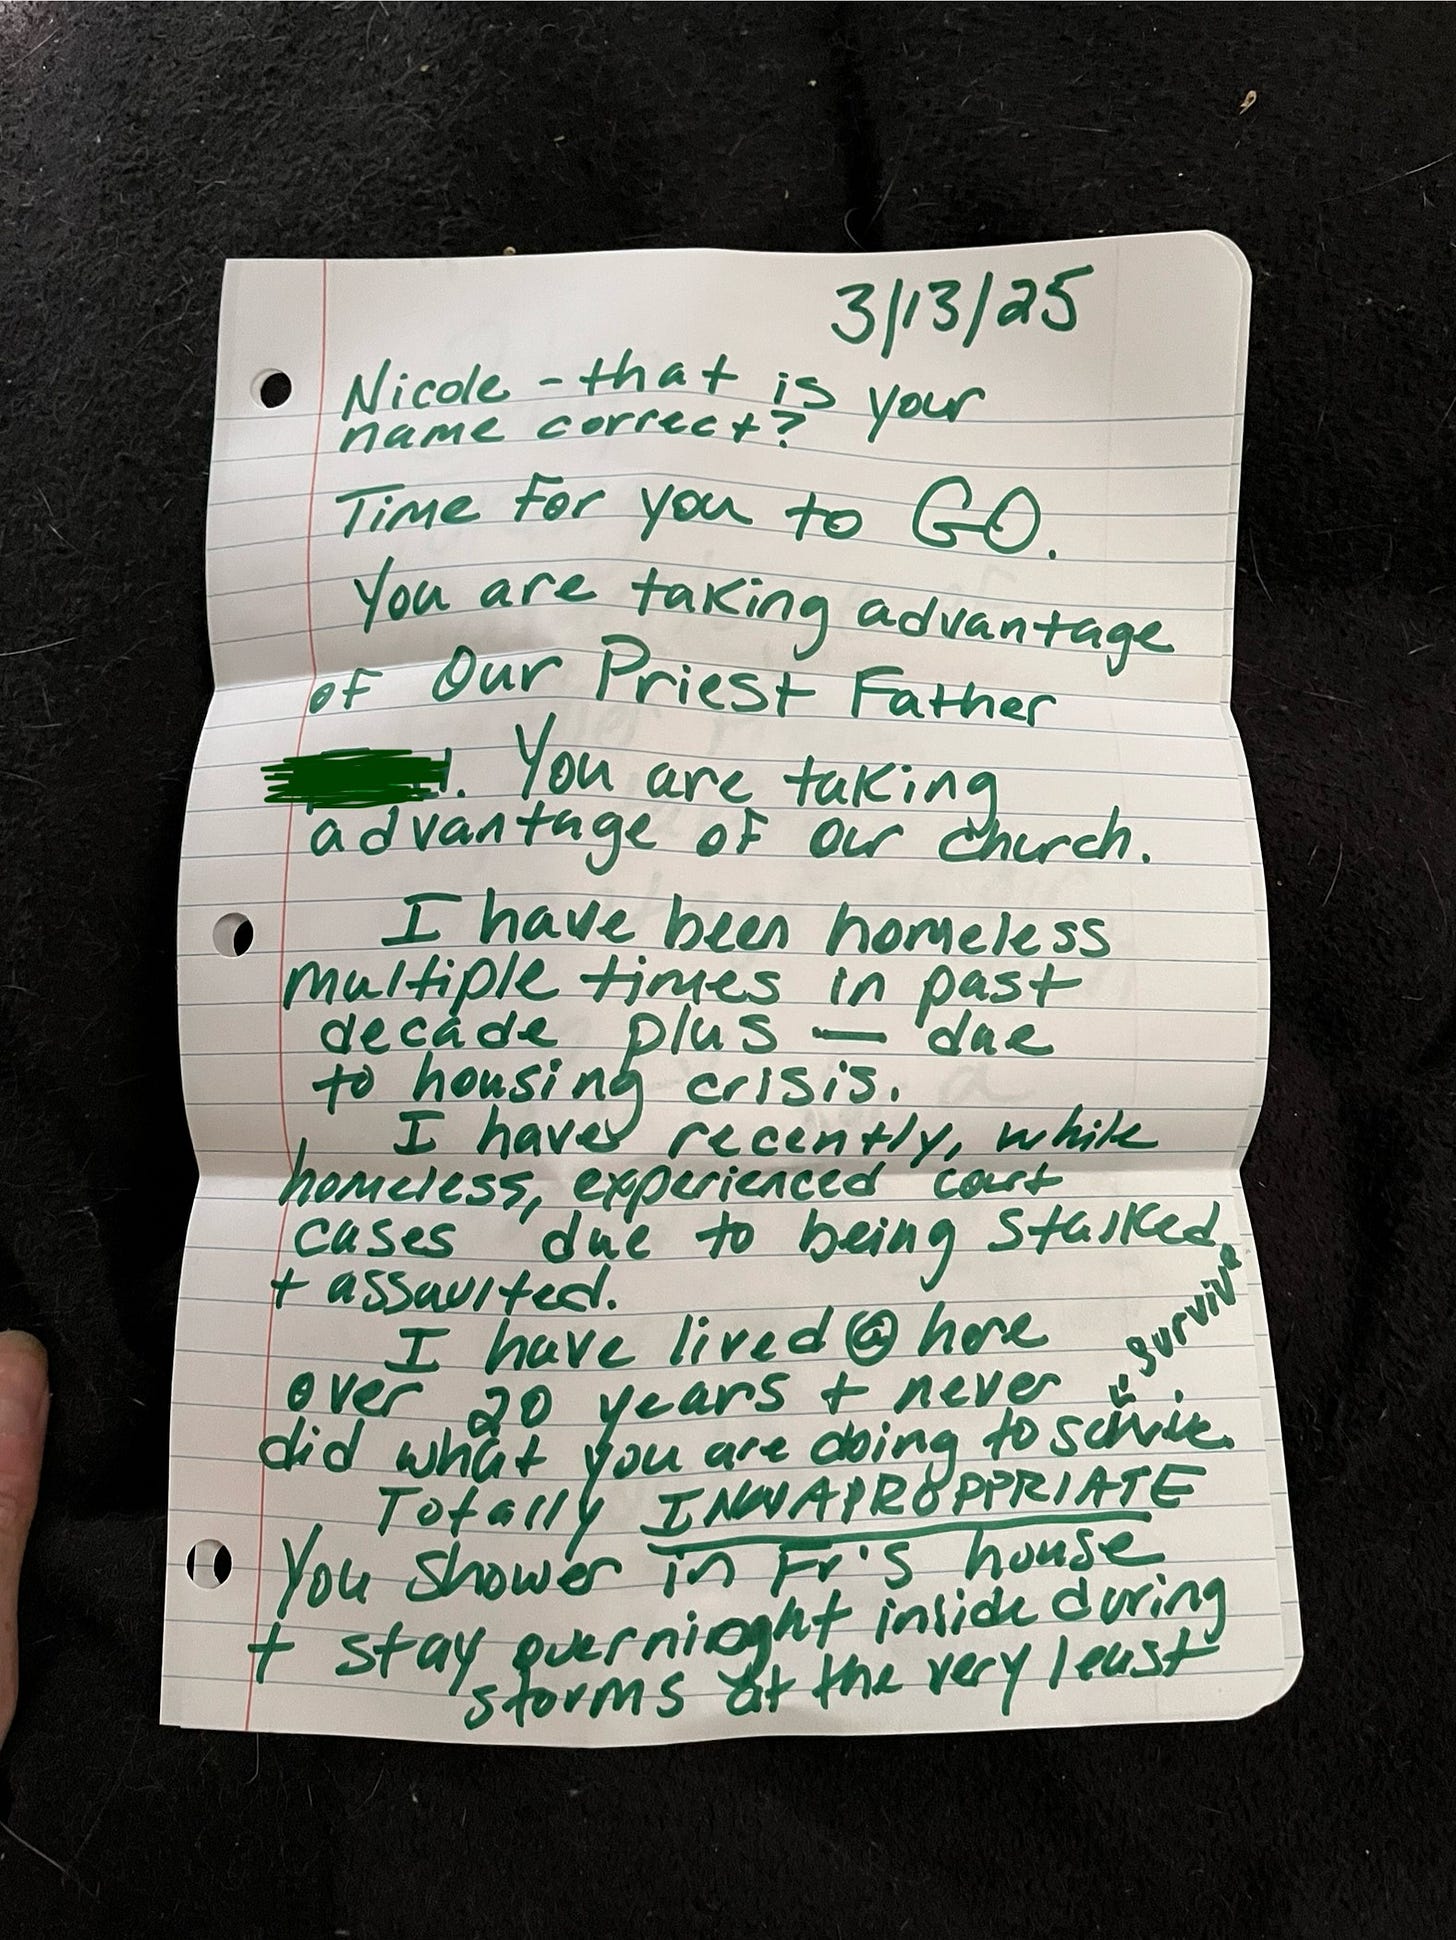 3/13/25
Nicole - that is your
name correct?
Time for you to GO.
You are taking advantage
of Our Priest Father
. You are taking
advantage of our church.
I have been homeless
multiple times in past
decade plus — due
to housing crisis.
I have recently, while
homeless, experienced court
cases due to being stalked
+ assaulted.
I have lived @ hore
over 20 years + never
did what you are doing to survive
Totally INNAPROPPRIATE
You shower in Fr's house
+ stay overnioght inside during
storms at the very least